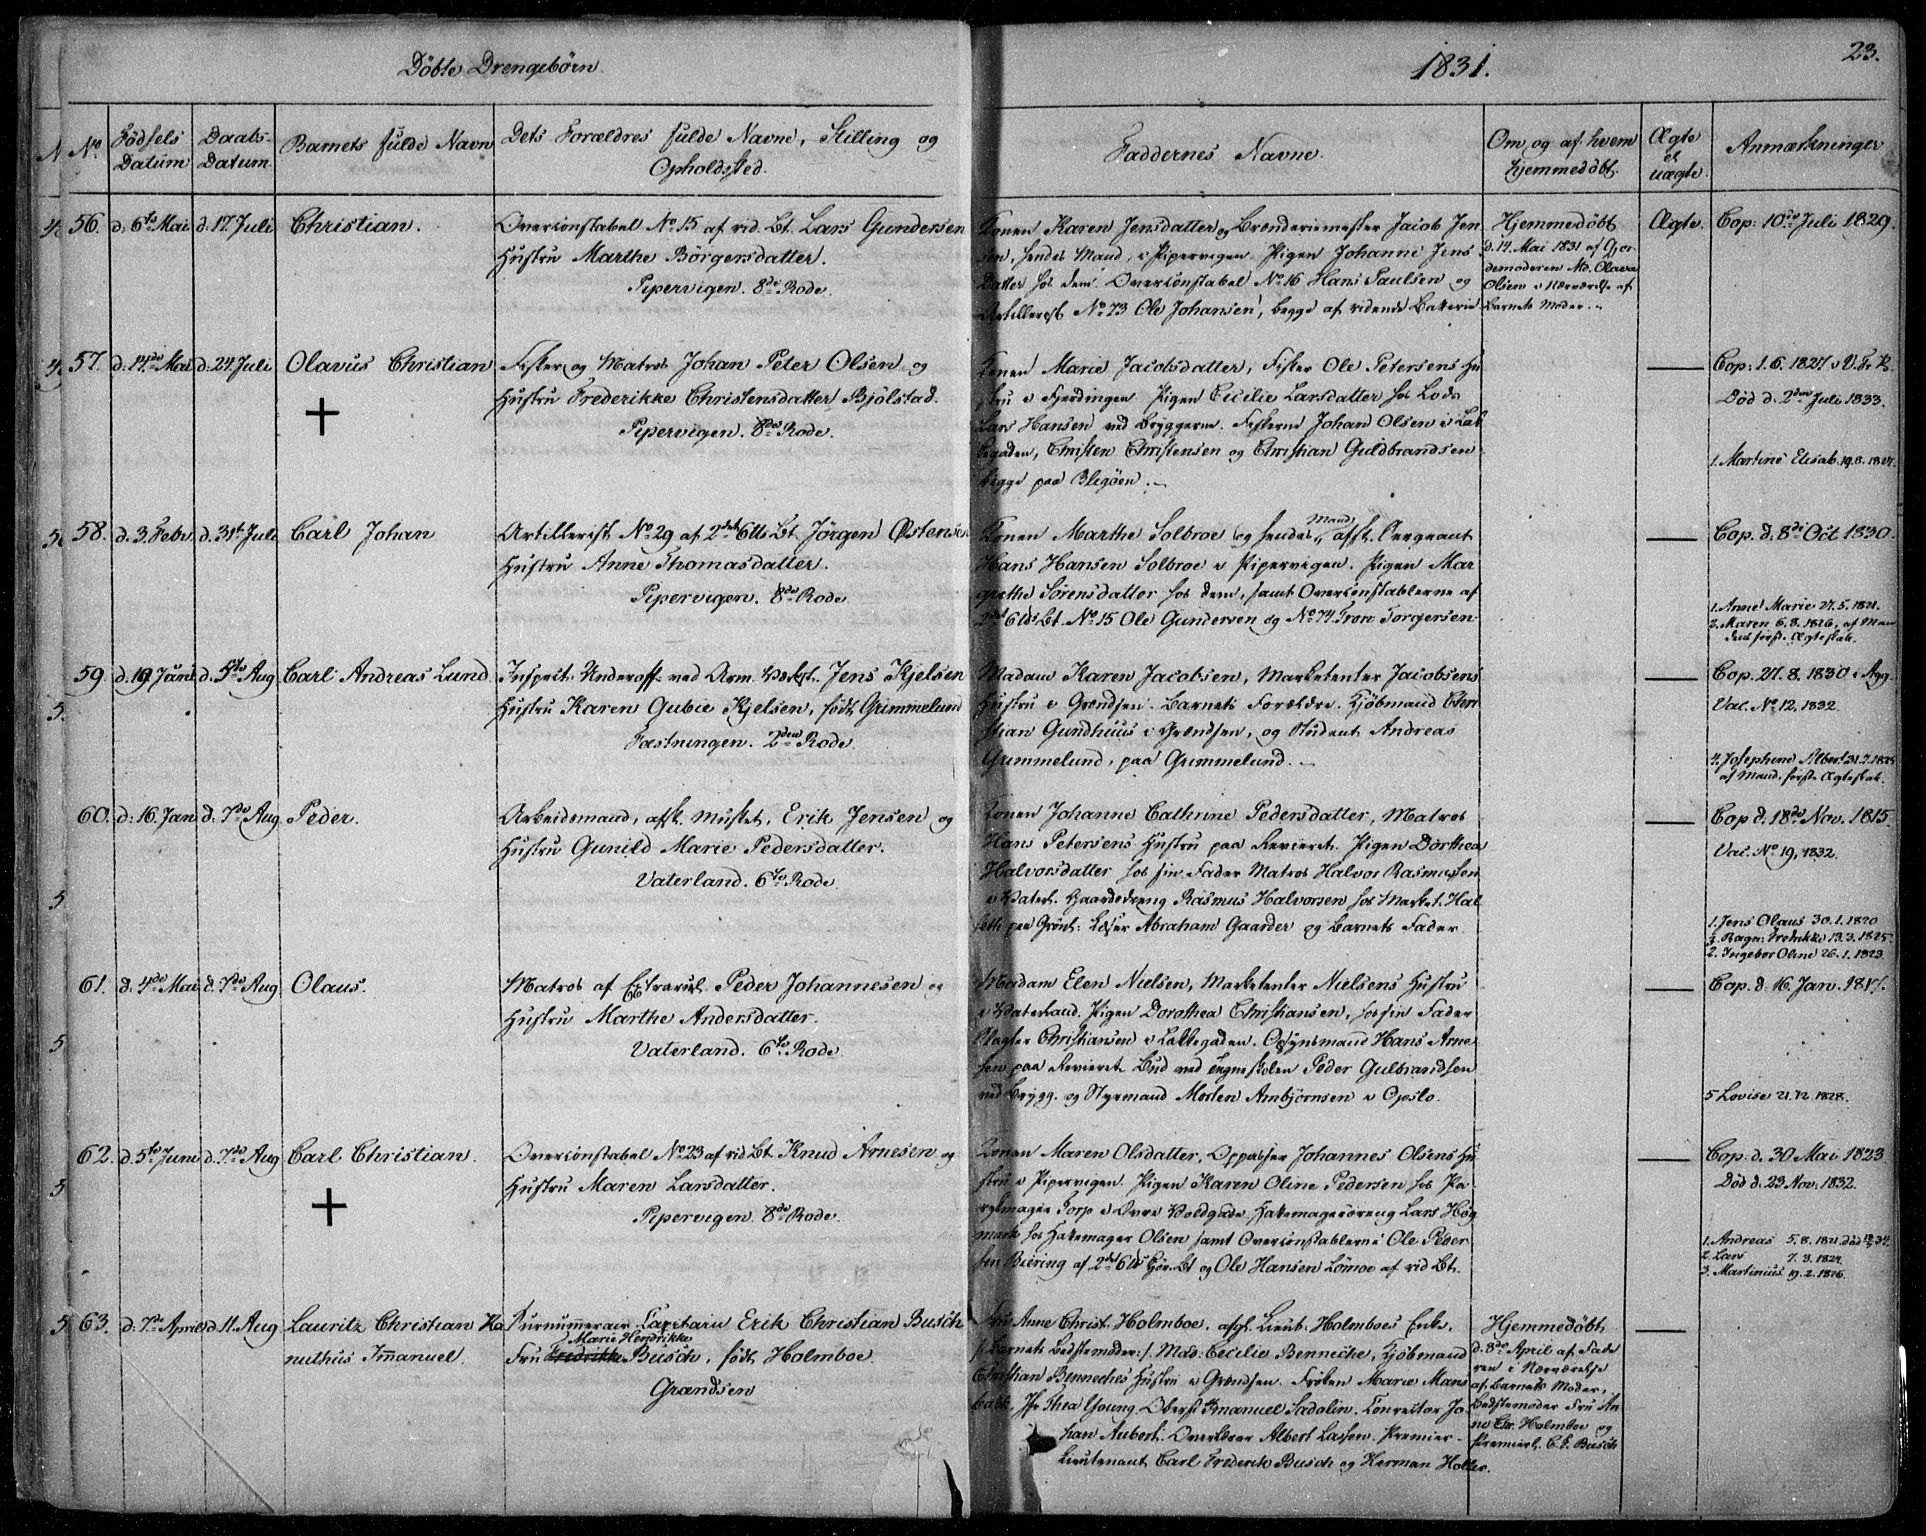 Döbte Drengebörn.
1831.
23.
No.
Födsels Datum
Daabs-Datum.
Barnets fulde Navn
Dets Forældres fulde Navne, Stilling og
Opholdsted.
Faddernes Navne.
Om og af hvem
hjemmedöbt.
Ægte
el
uægte.
Anmærkninger
56. d. 6te Mai d. 17. Juli Christian.
Overconstabel No. 15 af rid. Bt. Lars Gundersen
Hustru Marthe Börgersdatter.
Pipervigen. 8de Rode.
Konen Karen Jensdatter og Brönderiemester Jacob Jen
sen, hendes Mand, i Pipervigen. Pigen Johanne Jens
Datter hos dem. Overconstabel No. 16 Hans Paulsen og
Artillerist No. 73 Ole Johansen, begge af ridende Batterie
Hjemmedöbt
d. 14. Mai 1831 af Gjor
demoderen Md. Olava
Olsen i Nærværelse af
Barnets Moder.
Ægte.
Cop: 10de Juli 1829.
57. d. 14de Mai d. 24. Juli Olavus Christian
Fisker og Matros Johan Peter Olsen og
Hustru Frederikke Christensdatter Bjölstad.
Pipervigen. 8de Rode.
Konen Marie Jacobsdatter, Fisker Ole Petersens Hu
stru i Fjerdingen. Pigen Cecilie Larsdatter hos Lods
Lars Hansen ved Bryggerne. Fiskerne Johan Olsen i Lak
kegaden, Christen Christensen og Christian Guldbrandsen
begge paa Blegöen.
Cop: 1.6.1827 i V. Fr. K.
Död d. 2den Juli 1833.
1. Martine Elisab. 19.8.1827.
58. d. 3. Febr. d. 31te Juli Carl Johan
Artillerist No. 29 af 2det 6tt Bt. Jörgen Østensen
Hustru Anne Thomasdatter.
Pipervigen. 8de Rode
Konen Marthe Solbroe og hendes Mand, afsk. Sergeant
Hans Hansen Solbroe i Pipervigen. Pigen Mar
grethe Sörensdatter hos dem, samt Overconstablerne af
2det 6tds Bt. No. 15 Ole Gundersen og No. 74 Tron Torgersen
Cop. d. 8de Oct 1830.
1. Anne Marie 27.5.1821.
2. Maren 6.8.1826, af Man
dens förste Ægteskab.
59 d. 19 Juni d. 5te Aug Carl Andreas Lund
Inspect. Underoff. ved Arm. Værkst. Jens Kjelsen
Hustru Karen Gubie Kjelsen, födt Grimmelund
Fæstningen. 2den Rode.
Madam Karen Jacobsen, Marketenter Jacobsens
Hustru i Grændsen. Barnets Forældre. Kjöbmand Chri
stian Gundhuus i Grændsen, og Student Andreas
Grimmelund, paa Grimmelund.
Cop. 27.8.1830 i Agg.
Vac. No. 12, 1832.
4. Josephine Albert
af Mand. förste Ægteskab.
60. d. 16. Jan d. 7de Aug Peder.
Arbeidsmand, afsk. musket. Erik Jensen og
Hustru Gunild Marie Pedersdatter.
Vaterland. 6te Rode
Konen Johanne Cathrine Pedersdatter, Matros
Hans Petersens Hustru paa Revieret. Pigen Dorthea
Halvorsdatter hos sin Fader Matros Halvor Rasmussen
i Vaterl. Gaardsdreng Rasmus Halvorsen hos Market. Hal
seth paa Grönl. Læser Abraham Gaarder og Barnets Fader
Cop d. 18de Nov. 1815.
Vac. No 19, 1832.
1. Jens Olaus 30.1.1820
3. Ragn: Fredrikke 13.3.1825.
2. Ingebor Oline 26.1.1823.
61. d. 4de Mai d. 7de Aug Olaus.
Matros af Extrarul. Peder Johannesen og
Hustru Marthe Andersdatter.
Vaterland. 6te Rode
Madam Elen Nielsen, Marketenter Nielsens Hustru
i Vaterland. Pigen Dorothea Christiansen, hos sin Fader
Vagter Christiansen i Lakkegaden. Opsynsmand Hans Arne
sen paa Revieret. Bud ved Tegneskolen Peder Gulbrandsen
ved Brygg. og Styrmand Morten Anbjörnsen i Opslo.
Cop. d. 16 Jan. 1817.
5 Lovise 21.12.1828.
62. d. 5te Juni d. 7de Aug Carl Christian.
Overconstabel No. 23 af rid Bt. Knud Arnesen og
Hustru Maren Larsdatter.
Pipervigen 8de Rode.
Konen Maren Olsdatter, Oppasser Johannes Olsens Hu
stru i Pipervigen. Pigen Karen Oline Pedersen hos Pa
rykmager Torp i Övre Voldgade. Hattemagerdreng Lars Hög
mark hos Hattemager Olsen samt Overconstablerne Ole Peder
sen Biering af 2det 6tds Bt og Ole Hansen Lömoe af rid Bt.
Cop. d. 30 Mai 1823
Död d. 23 Nov. 1832.
1. Andreas 5.8.1821
2. Lars 7.3.1824.
3. Martinius 19.2.1826.
63. d. 7de April d. 11. Aug Lauritz Christian Ha
nuthus Imanuel.
Surnummerair Capitain Erik Christian Busch
Marie Hendrikke
Fru Fredrikke Busch, födt Holmboe.
Grændsen
Fru Anne Christ. Holmboe, afg. Lieut: Holmboes Enke
/: Barnets Bedstemoder :/. Mad: Cecilie Bennecke, Kjöbmand
Christian Benneckes Hustru i Grændsen. Fröken Marie Mans
bach, Jfr Thea Young. Oberst Emanuel Sadolin. Conrector Jo
han Aubert. Overlærer Albert Lassen. Premier-
Lieutenant Carl Frederik Busch og Herman Holter.
Hjemmedöbt,
d. 8de April af Fade
ren i Nærværelse
af Barnets Moder,
Bedstemoder Fru An
ne Chr. Holmboe og
Premierl. C. F. Busch